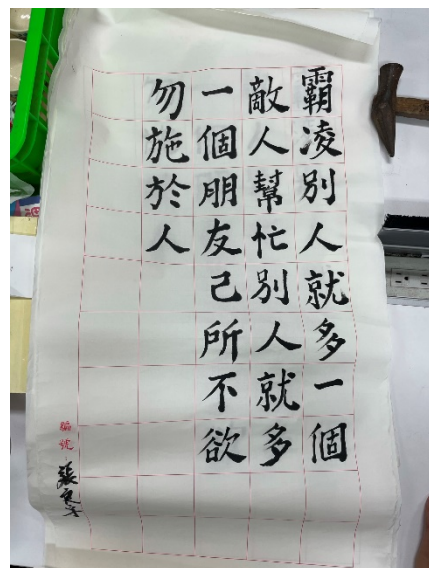 霸凌別人就多一個
敵人幫忙別人就多
一個朋友己所不欲
勿施於人
編號